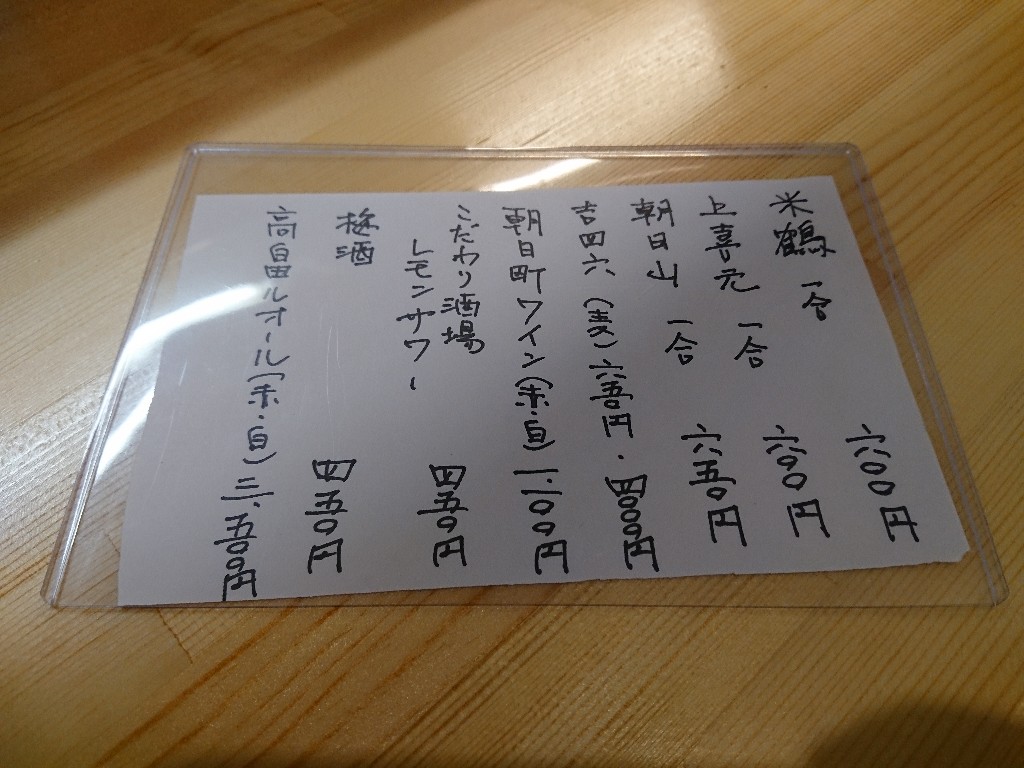 米鶴 一合 六〇〇円
上喜元 一合 六〇〇円
朝日山 一合 六五〇円
吉四六(麦)六五〇円・四〇〇〇円
朝日町ワイン(赤・白)一、二〇〇円
こだわり酒場
レモンサワー 四五〇円
梅酒 四五〇円
高畠ルオール(赤・白)三、五〇〇円